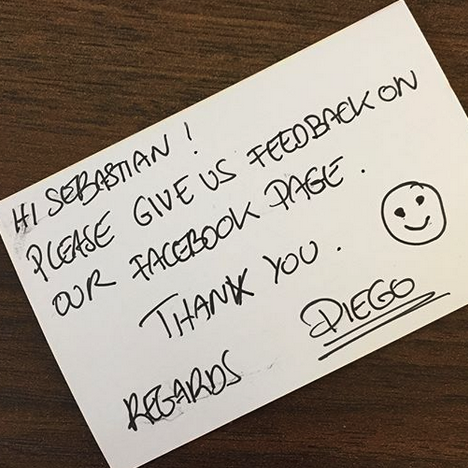 HI SEBASTIAN!
PLEASE GIVE US FEEDBACK ON
OUR FACEBOOK PAGE.
THANK YOU.
REGARDS DIEGO